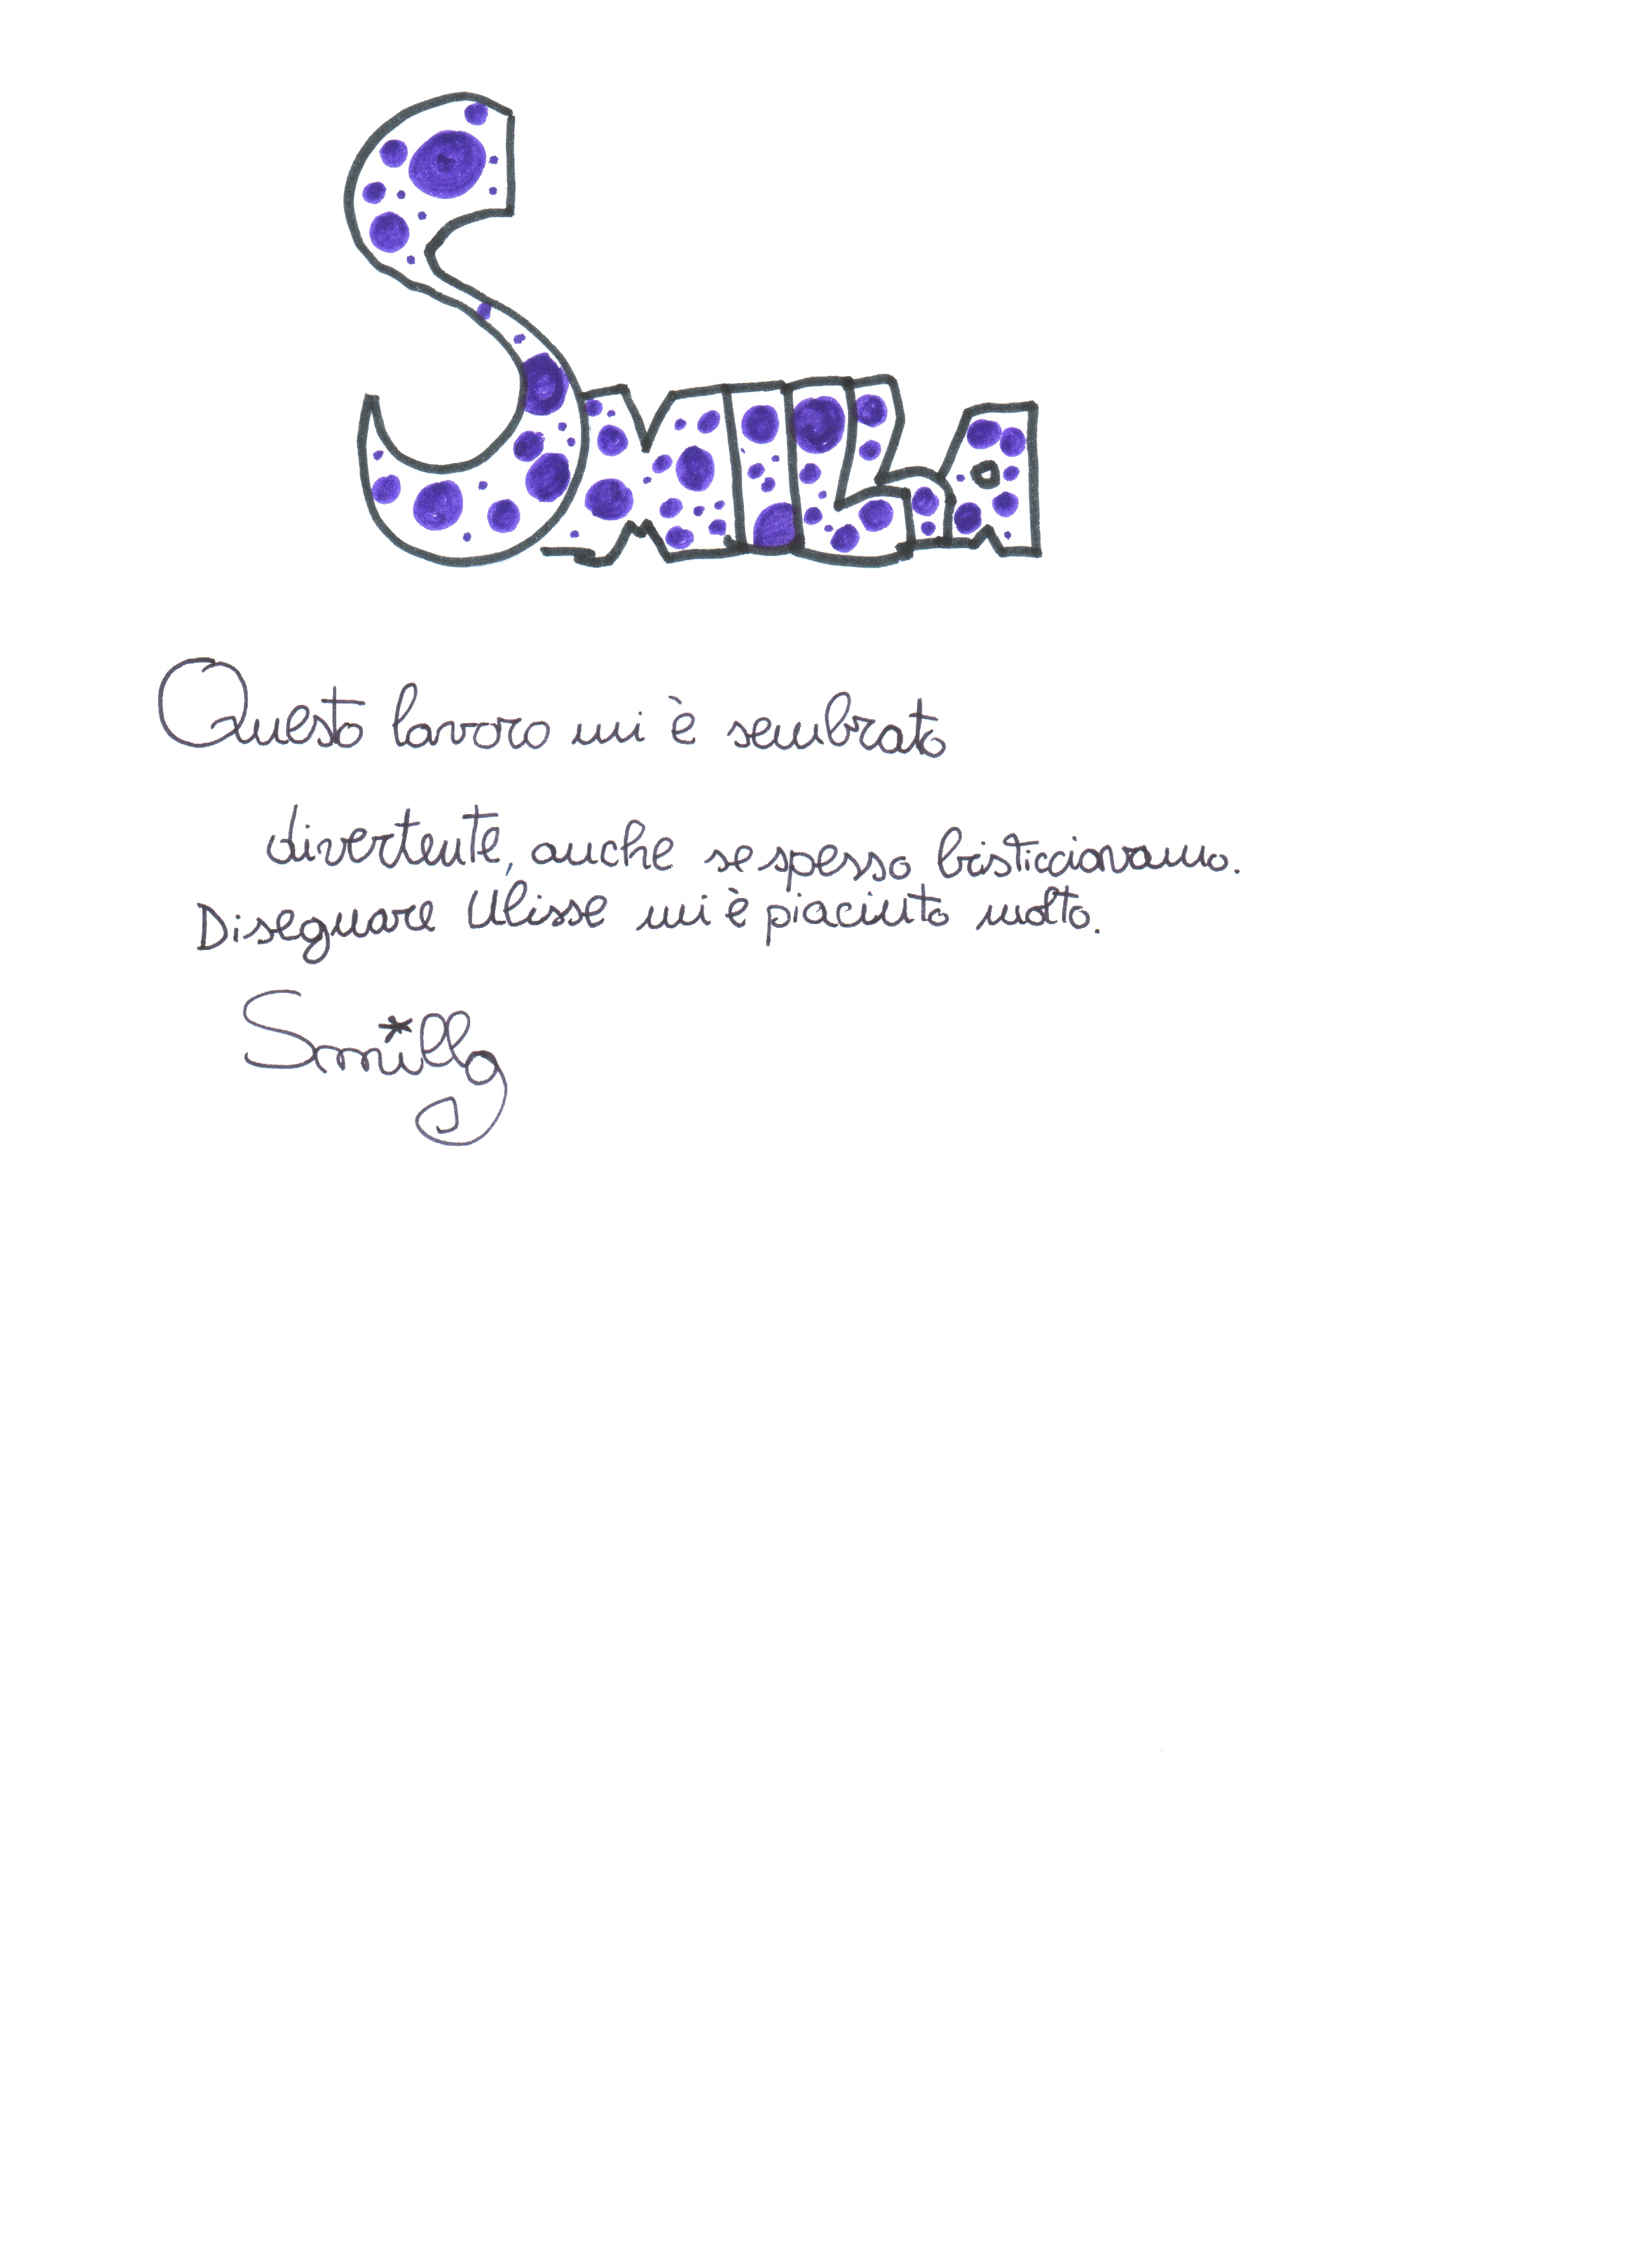 SMILLA
Questo lavoro mi è sembrato
divertente, anche se spesso bisticciavamo.
Disegnare Ulisse mi è piaciuto molto.
Smilla